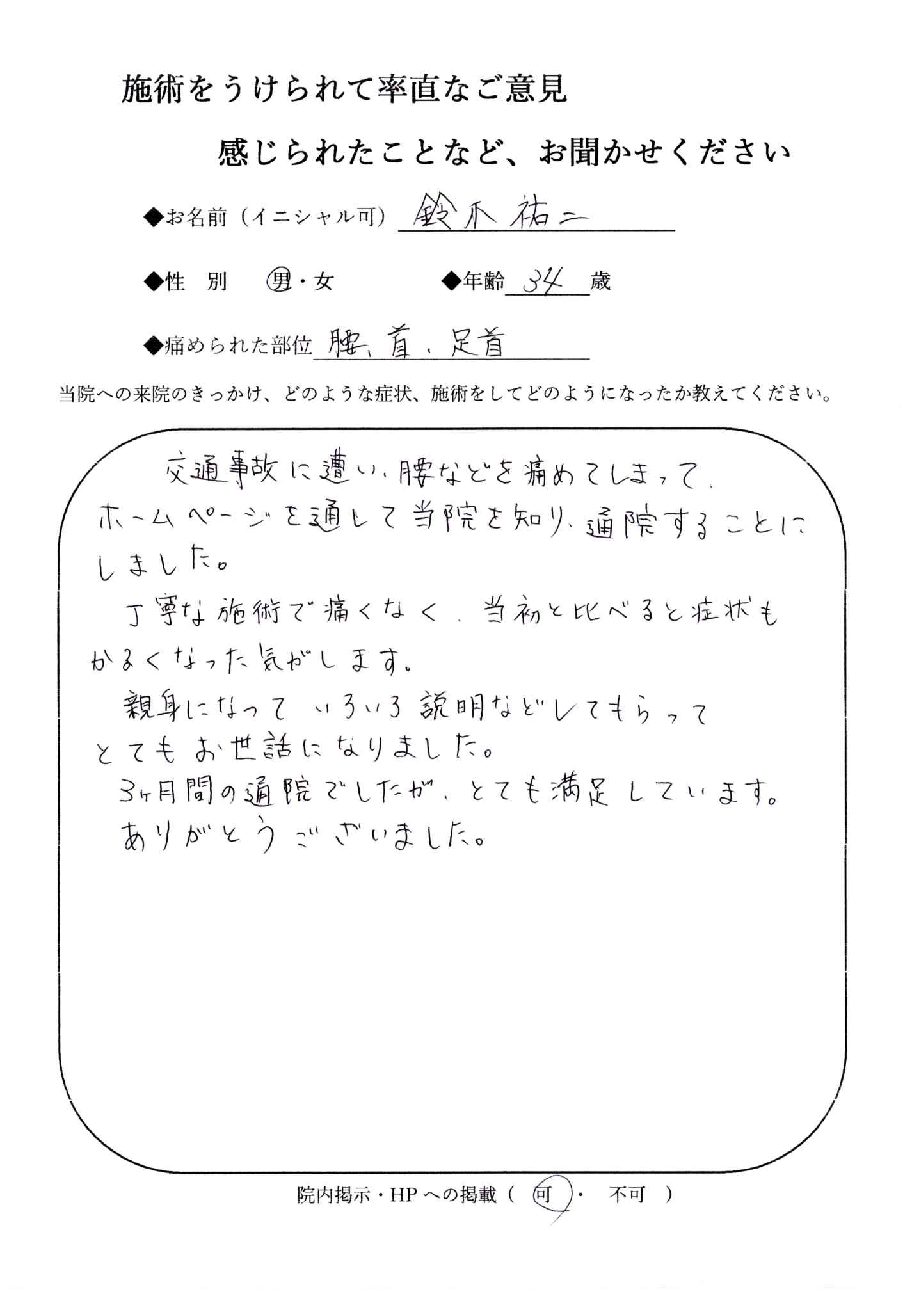 施術をうけられて率直なご意見
感じられたことなど、お聞かせください
◆お名前（イニシャル可） 鈴木 祐二
◆性　別　男・女　◆年齢 34 歳
◆痛められた部位 腰、首、足首
当院への来院のきっかけ、どのような症状、施術をしてどのようになったか教えてください。
交通事故に遭い、腰などを痛めてしまって、
ホームページを通して当院を知り、通院することに
しました。
丁寧な施術で痛くなく、当初と比べると症状も
かるくなった気がします。
親身になって いろいろ説明などしてもらって
とてもお世話になりました。
3ヶ月間の通院でしたが、とても満足しています。
ありがとうございました。
院内掲示・HPへの掲載（ 可 ・ 不可 ）